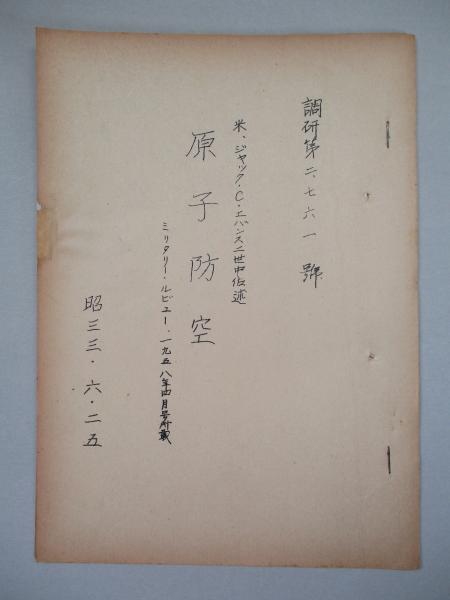 調研第二、七六一號
米、ジャック・C・エバンス二世中佐述
原子防空
ミリタリー・ルビュー、一九五八年四月号所載
昭三三・六・二五